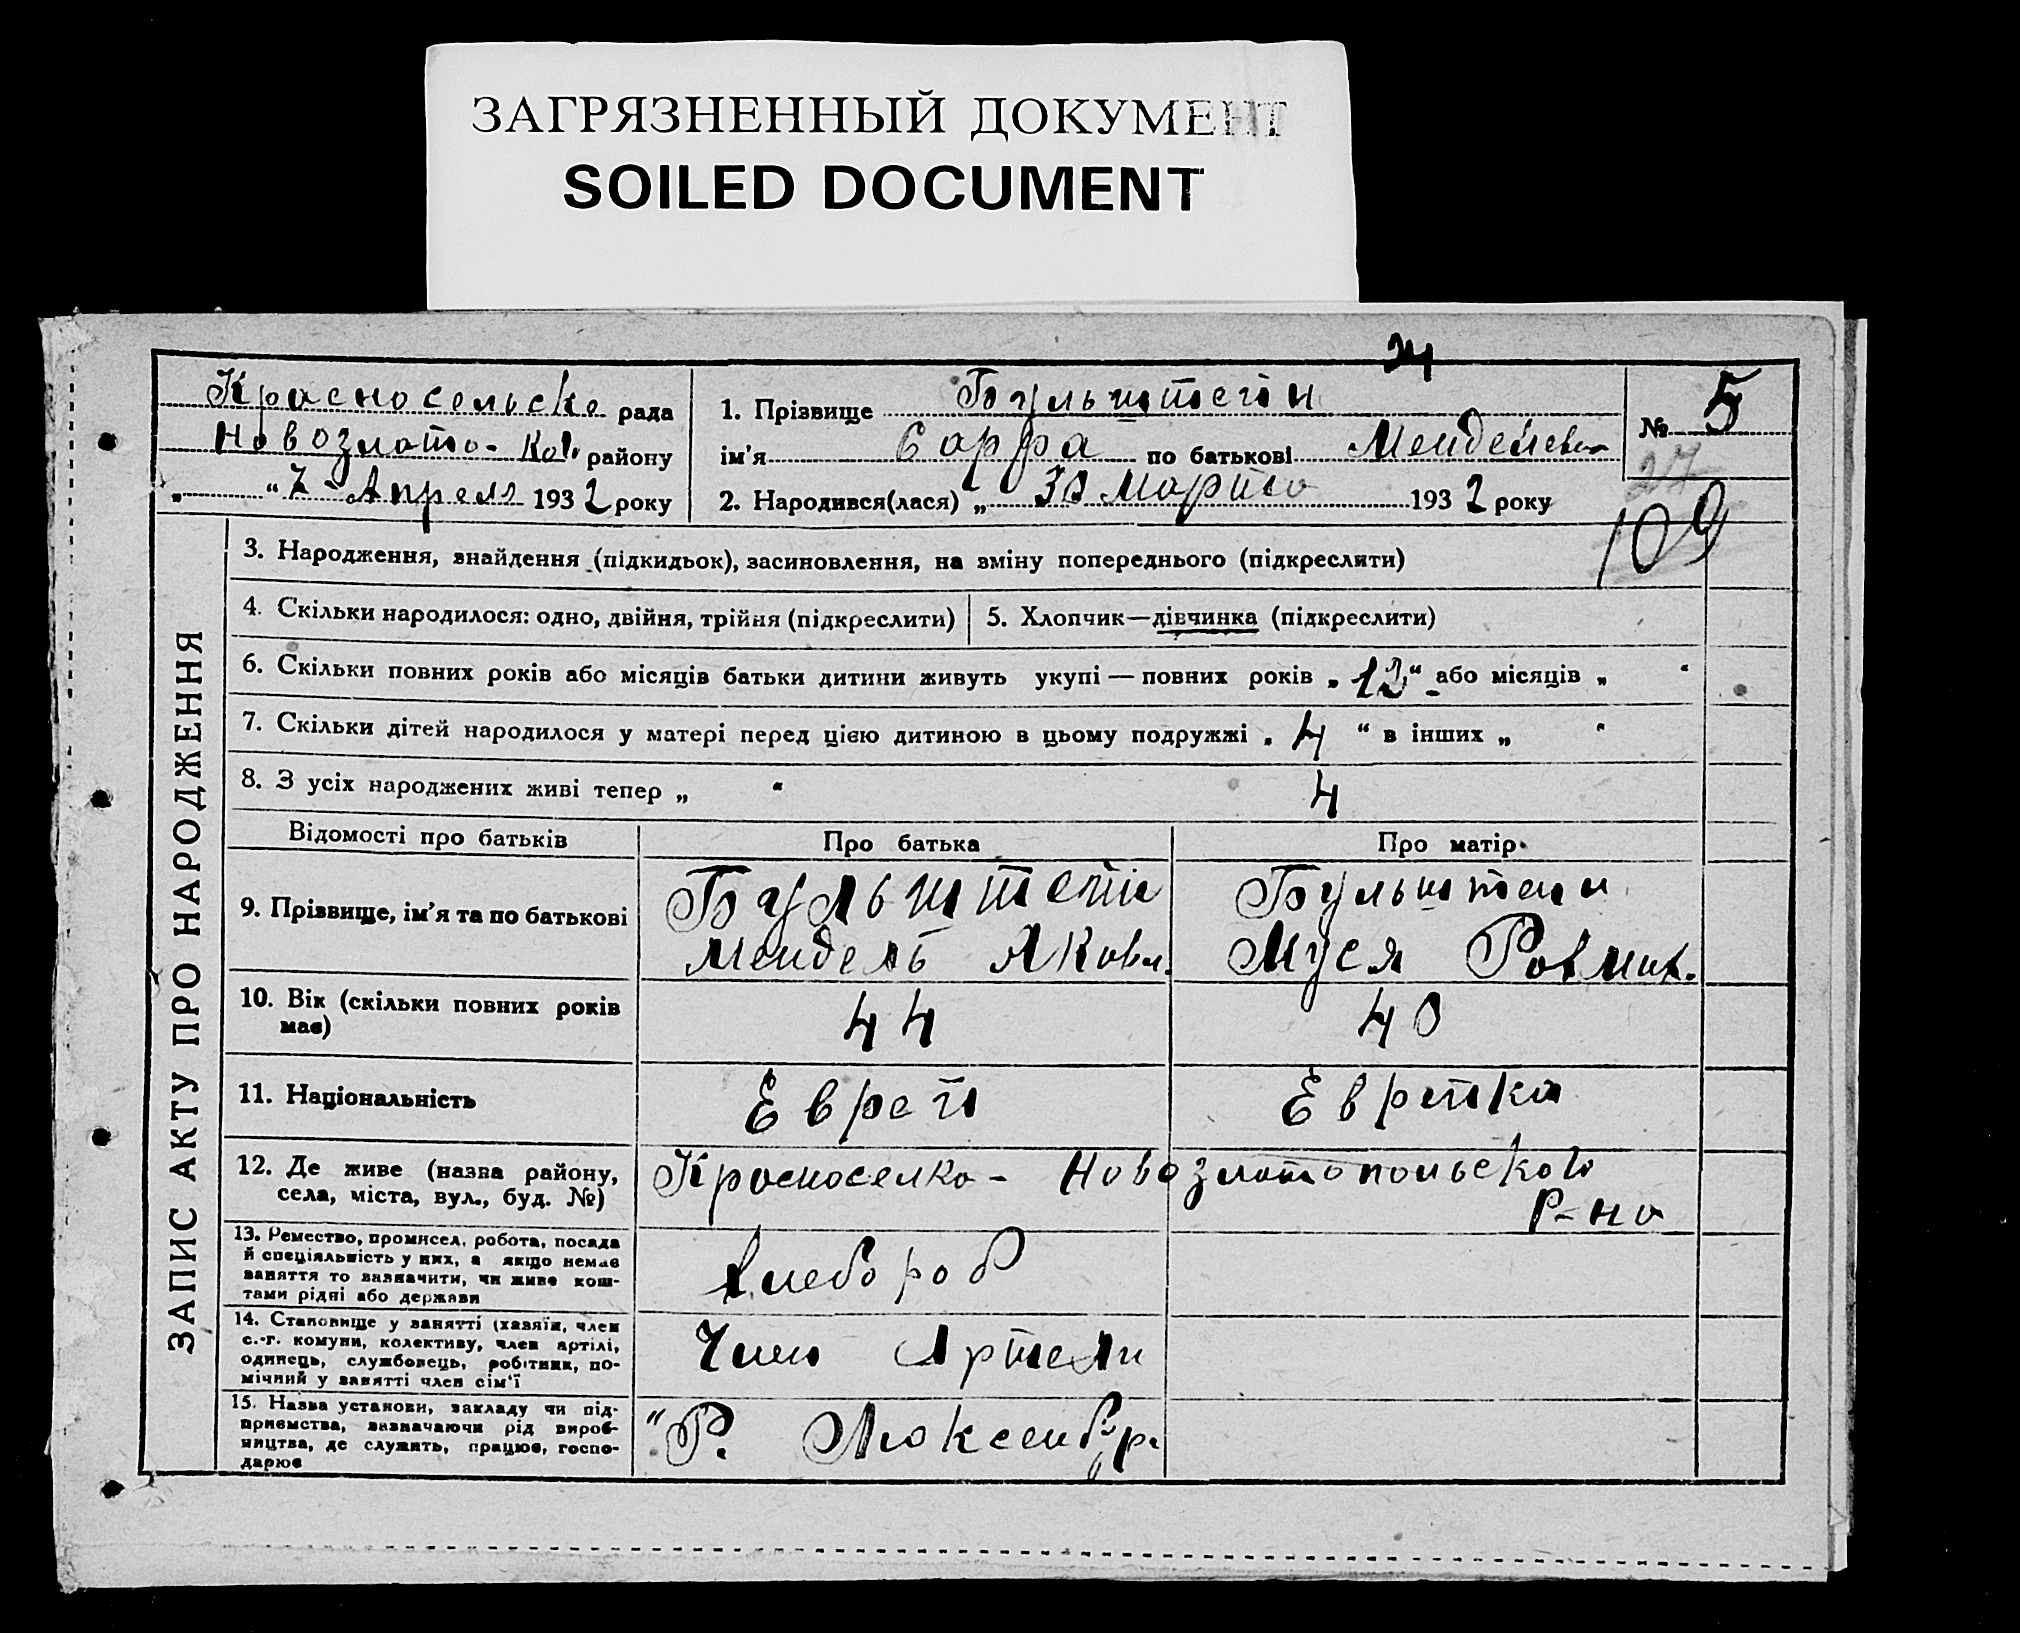 ЗАГРЯЗНЕННЫЙ ДОКУМЕНТ
SOILED DOCUMENT
Красносельске рада
Новозлато- района району
„ “ 7 Апреля 1932 року
1. Прізвище Бульштейн
ім'я Сарра по батькові Менделевн
2. Народився(лася) „ 30 Марта 1932 року
№ 5
27
109
3. Народження, знайдення (підкидьок), засиновлення, на зміну попереднього (підкреслити)
4. Скільки народилося: одно, двійня, трійня (підкреслити)
5. Хлопчик—дівчинка (підкреслити)
6. Скільки повних років або місяців батьки дитини живуть укупі — повних років „ 12 “ або місяців „ “
7. Скільки дітей народилося у матері перед цією дитиною в цьому подружжі „ 4 “ в інших „ “
8. З усіх народжених живі тепер „ “ 4
ЗАПИС АКТУ ПРО НАРОДЖЕННЯ
Відомості про батьків
Про батька
Про матір
9. Прізвище, ім'я та по батькові
Бульштейн
Мендель Яковл.
Бульштейн
Муся
10. Вік (скільки повних років
має)
44
40
11. Національність
Еврей
Еврейка
12. Де живе (назва району,
села, міста, вул., буд. №)
Красноселка - Новозлатопольского
Р-на
13. Ремество, промисел, робота, посада
й спеціяльність у них, а якщо немає
заняття то зазначити, чи живе кош-
тами рідні або держави
Хлебороб
14. Становище у занятті (хазяїн, член
с.-г. комуни, колективу, член артілі,
одинець, службовець, робітник, по-
мічний у занятті член сім'ї
Член Артели
15. Назва установи, закладу чи під-
приємства, зазначаючи рід вироб-
ництва, де служить, працює, госпо-
дарює
“Р. Люксембур.